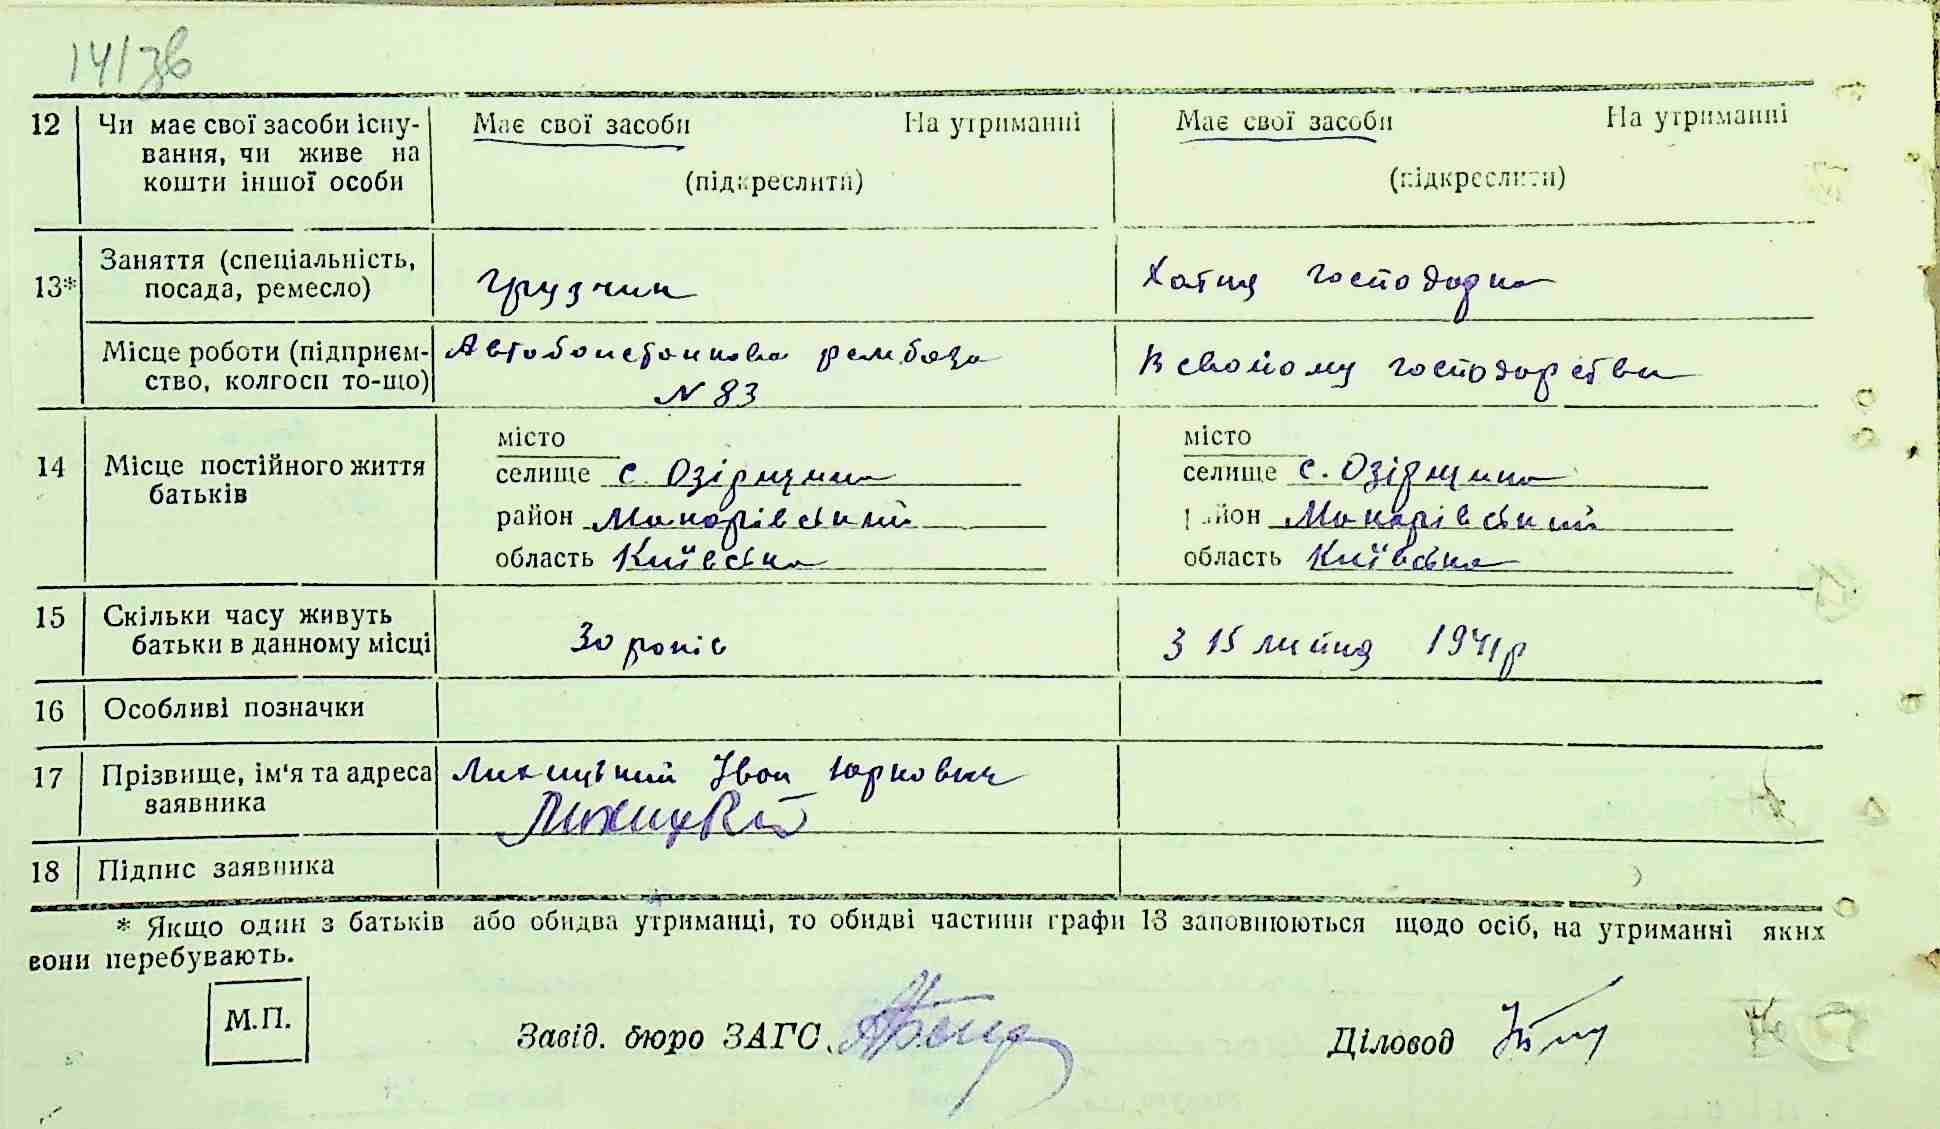 14/зв
12 Чи має свої засоби існу- Має свої засоби На утриманні Має свої засоби На утриманні
вання, чи живе на
кошти іншої особи (підкреслити) (підкреслити)
13* Заняття (спеціальність, грузчик Хатня господарка
посада, ремесло)
Місце роботи (підприєм- рембаза В своїому господарстви
ство, колгосп то-що) N 83
14 Місце постійного життя батьків
місто місто
селище с. Озірщина селище с. Озірщина
район Макарівський район Макарівський
область Київська область Київська
15 Скільки часу живуть 30 років З 15 липня 1941р
батьки в данному місці
16 Особливі позначки
17 Прізвище, ім'я та адреса Лихицький Іван Юркович
заявника Лихицкий
18 Підпис заявника
* Якщо один з батьків або обидва утриманці, то обидві частини графи 13 заповнюються щодо осіб, на утриманні яких
вони перебувають.
М.П. Завід. бюро ЗАГС Діловод